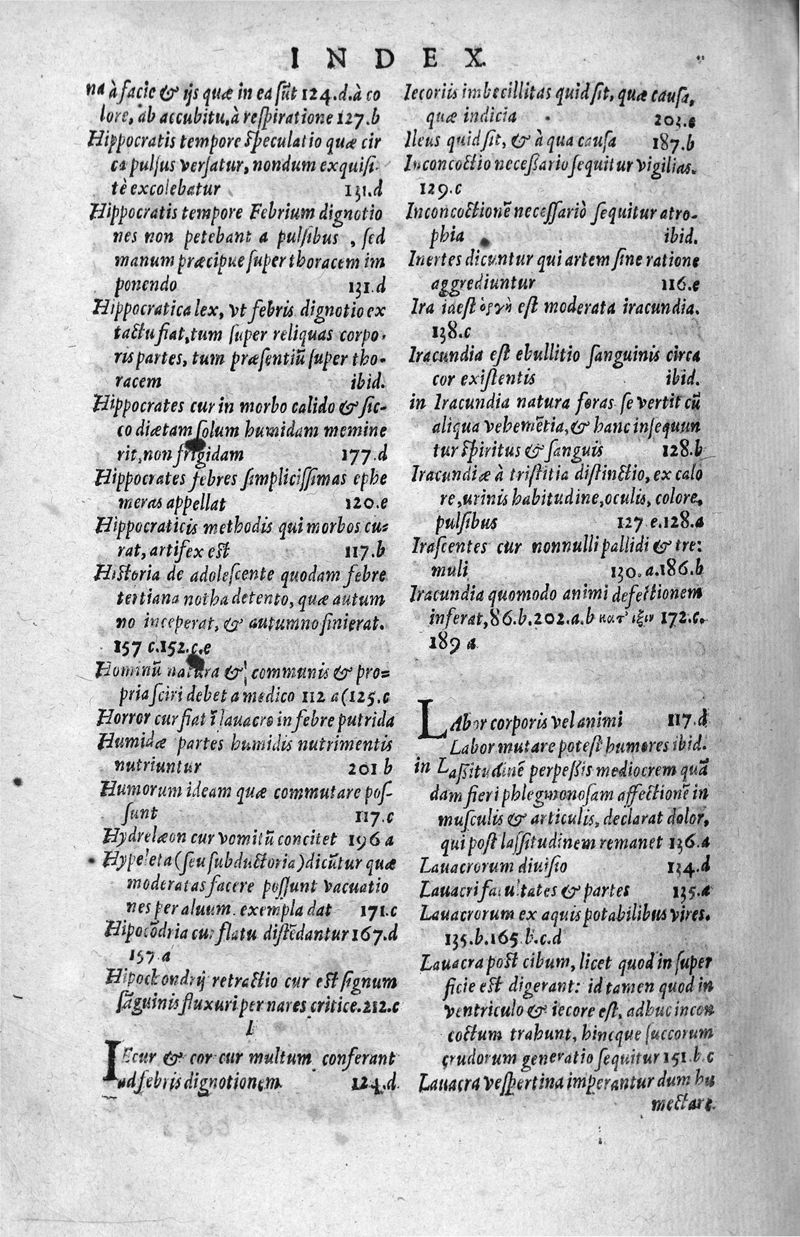 INDEX
na à facie & ijs quæ in ea sũt 124.d. à co
lore, ab accubitu, à respiratione 127.b
Hippocratis tempore speculatio quæ cir
ca pulsus versatur, nondum exquisi
tè excolebatur 131.d
Hippocratis tempore Febrium dignotio
nes non petebant a pulsibus, sed
manum præcipue super thoracem im
ponendo 131.d
Hippocratica lex, vt febris dignotio ex
tactu fiat, tum super reliquas corpo-
ris partes, tum præsentiũ super tho-
racem ibid.
Hippocrates cur in morbo calido & sic-
co diætam solum humidam memine
rit, non frigidam 177.d
Hippocrates febres simplicissimas ephe
meras appellat 120.e
Hippocraticis methodis qui morbos cu-
rat, artifex est 117.b
Historia de adolescente quodam febre
tertiana notha detento, quæ autum
no inceperat, & autumno finierat.
157 c.152.c.e
Hominũ natura & communis & pro=
pria sciri debet a medico 112 a(125.c
Horror cur fiat ĩ lauacro in febre putrida
Humidæ partes humidis nutrimentis
nutriuntur 201 b
Humorum ideam quæ commutare pos-
sunt 117.c
Hydrelæon cur vomitũ concitet 196 a
Hypeleta (seu subductoria) dicũtur quæ
moderatas facere possunt vacuatio
nes per aluum. exempla dat 171.c
Hipocõdria cur flatu distẽdantur 167.d
157 a
Hipochondrij retractio cur est signum
sãguinis fluxuri per nares critice. 212.c
I
IEcur & cor cur multum conferant
ad febris dignotionem 124.d
Iecoriis imbecillitas quid sit, quæ causa,
quæ indicia 203.e
Ileus quid sit, & à qua causa 187.b
Inconcoctio necessario sequitur vigilias.
129.c
Inconcoctionẽ necessariò sequitur atro-
phia ibid.
Inertes dicuntur qui artem sine ratione
aggrediuntur 116.e
Ira idest ὀργὴ est moderata iracundia.
138.c
Iracundia est ebullitio sanguinis circa
cor existentis ibid.
in Iracundia natura foras se vertit cũ
aliqua vehemẽtia, & hanc insequun
tur spiritus & sanguis 128.b
Iracundiæ à tristitia distinctio, ex calo
re, urinis habitudine, oculis, colore,
pulsibus 127 e.128.a
Irascentes cur nonnulli pallidi & tre:
muli 130.a.186.b
Iracundia quomodo animi defectionem
inferat, 86.b.202.a.b 172.c.
189 a
LAbor corporis vel animi 117.d
Labor mutare potest humores ibid.
in Lassitudinẽ perpessis mediocrem quã
dam fieri phlegmonosam affectionẽ in
musculis & articulis, declarat dolor,
qui post lassitudinem remanet 136.a
Lauacrorum diuisio 134.d
Lauacri facultates & partes 135.a
Lauacrorum ex aquis potabilibus vires.
135.b.165.b.c.d
Lauacra post cibum, licet quod in super
ficie est digerant: id tamen quod in
ventriculo & iecore est, adhuc incon
coctum trahunt, hincque succorum
crudorum generatio sequitur 151.b.c
Lauacra vespertina imperantur dum hu
mectare.